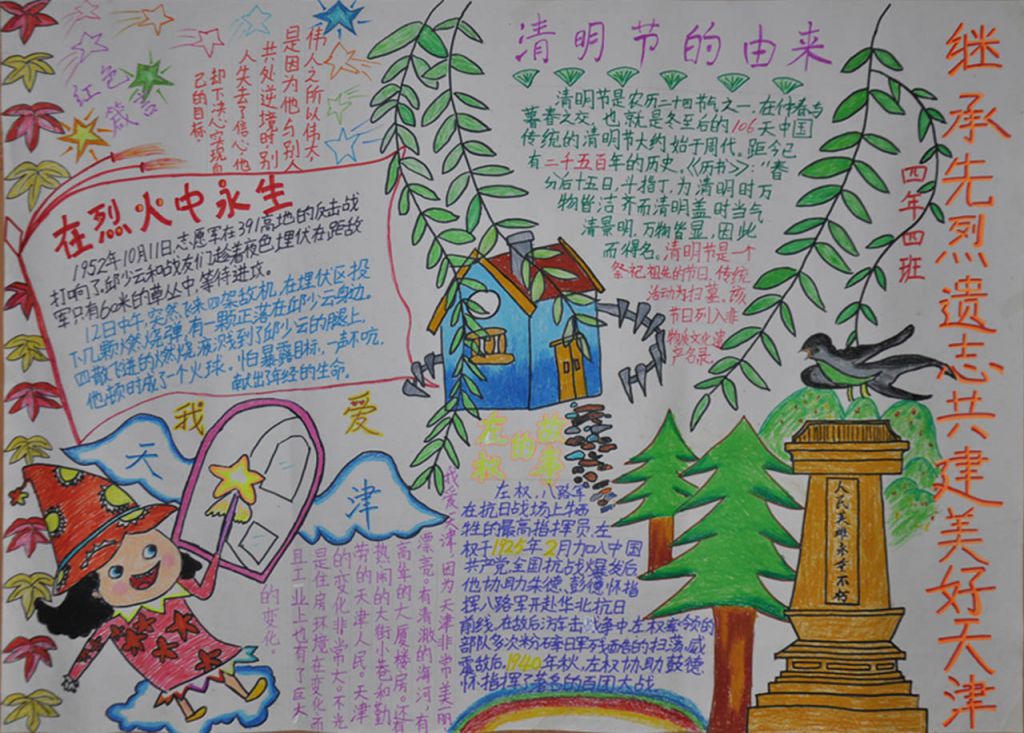 继承先烈遗志共建美好天津
四年四班
清明节的由来
清明节是农历二十四节气之一,在仲春与
暮春之交,也就是冬至后的106天中国
传统的清明节大约始于周代,距今已
有二千五百年的历史。《历书》:“春
分后十五日,斗指丁,为清明时万
物皆洁齐而清明盖时当气
清景明,万物皆显,因此
而得名。清明节是一个
祭祀祖先的节日,传统
活动为扫墓。该
节日列入非
物质文化遗
产名录。
红色
箴言
伟人之所以伟大
是因为他与别人
共处逆境时,别
人失去了信心,他
却下决心实现自
己的目标。
在烈火中永生
1952年10月11日,志愿军在391高地的反击战
打响了,邱少云和战友们趁着夜色,埋伏在距敌
军只有60米的草丛中,等待进攻。
12日中午,突然飞来四架敌机,在埋伏区投
下几颗燃烧弹,有一颗正落在邱少云身边。
四散飞迸的燃烧液溅到了邱少云的腿上。
他顿时成了一个火球。怕暴露目标,一声不吭,
献出了年轻的生命。
我爱
天津
我爱天津,因为天津非常美丽
漂亮。有清澈的海河,有
高耸的大厦楼房。还有
热闹的大街小巷和勤
劳的天津人民。天津
的变化非常大。不光
是住房环境在变化而
且工业上也有了巨大
的变化。
左权的故事
左权,八路军
在抗日战场上牺
牲的最高指挥员,左
权于1925年2月加入中国
共产党,全国抗战爆发后
他协助朱德、彭德怀指
挥八路军开赴华北抗日
前线,在敌后游击战争中,左权率领的
部队多次粉碎日军残酷的扫荡,威
震敌后,1940年秋,左权协助彭德
怀指挥了著名的百团大战
人民英雄永垂不朽